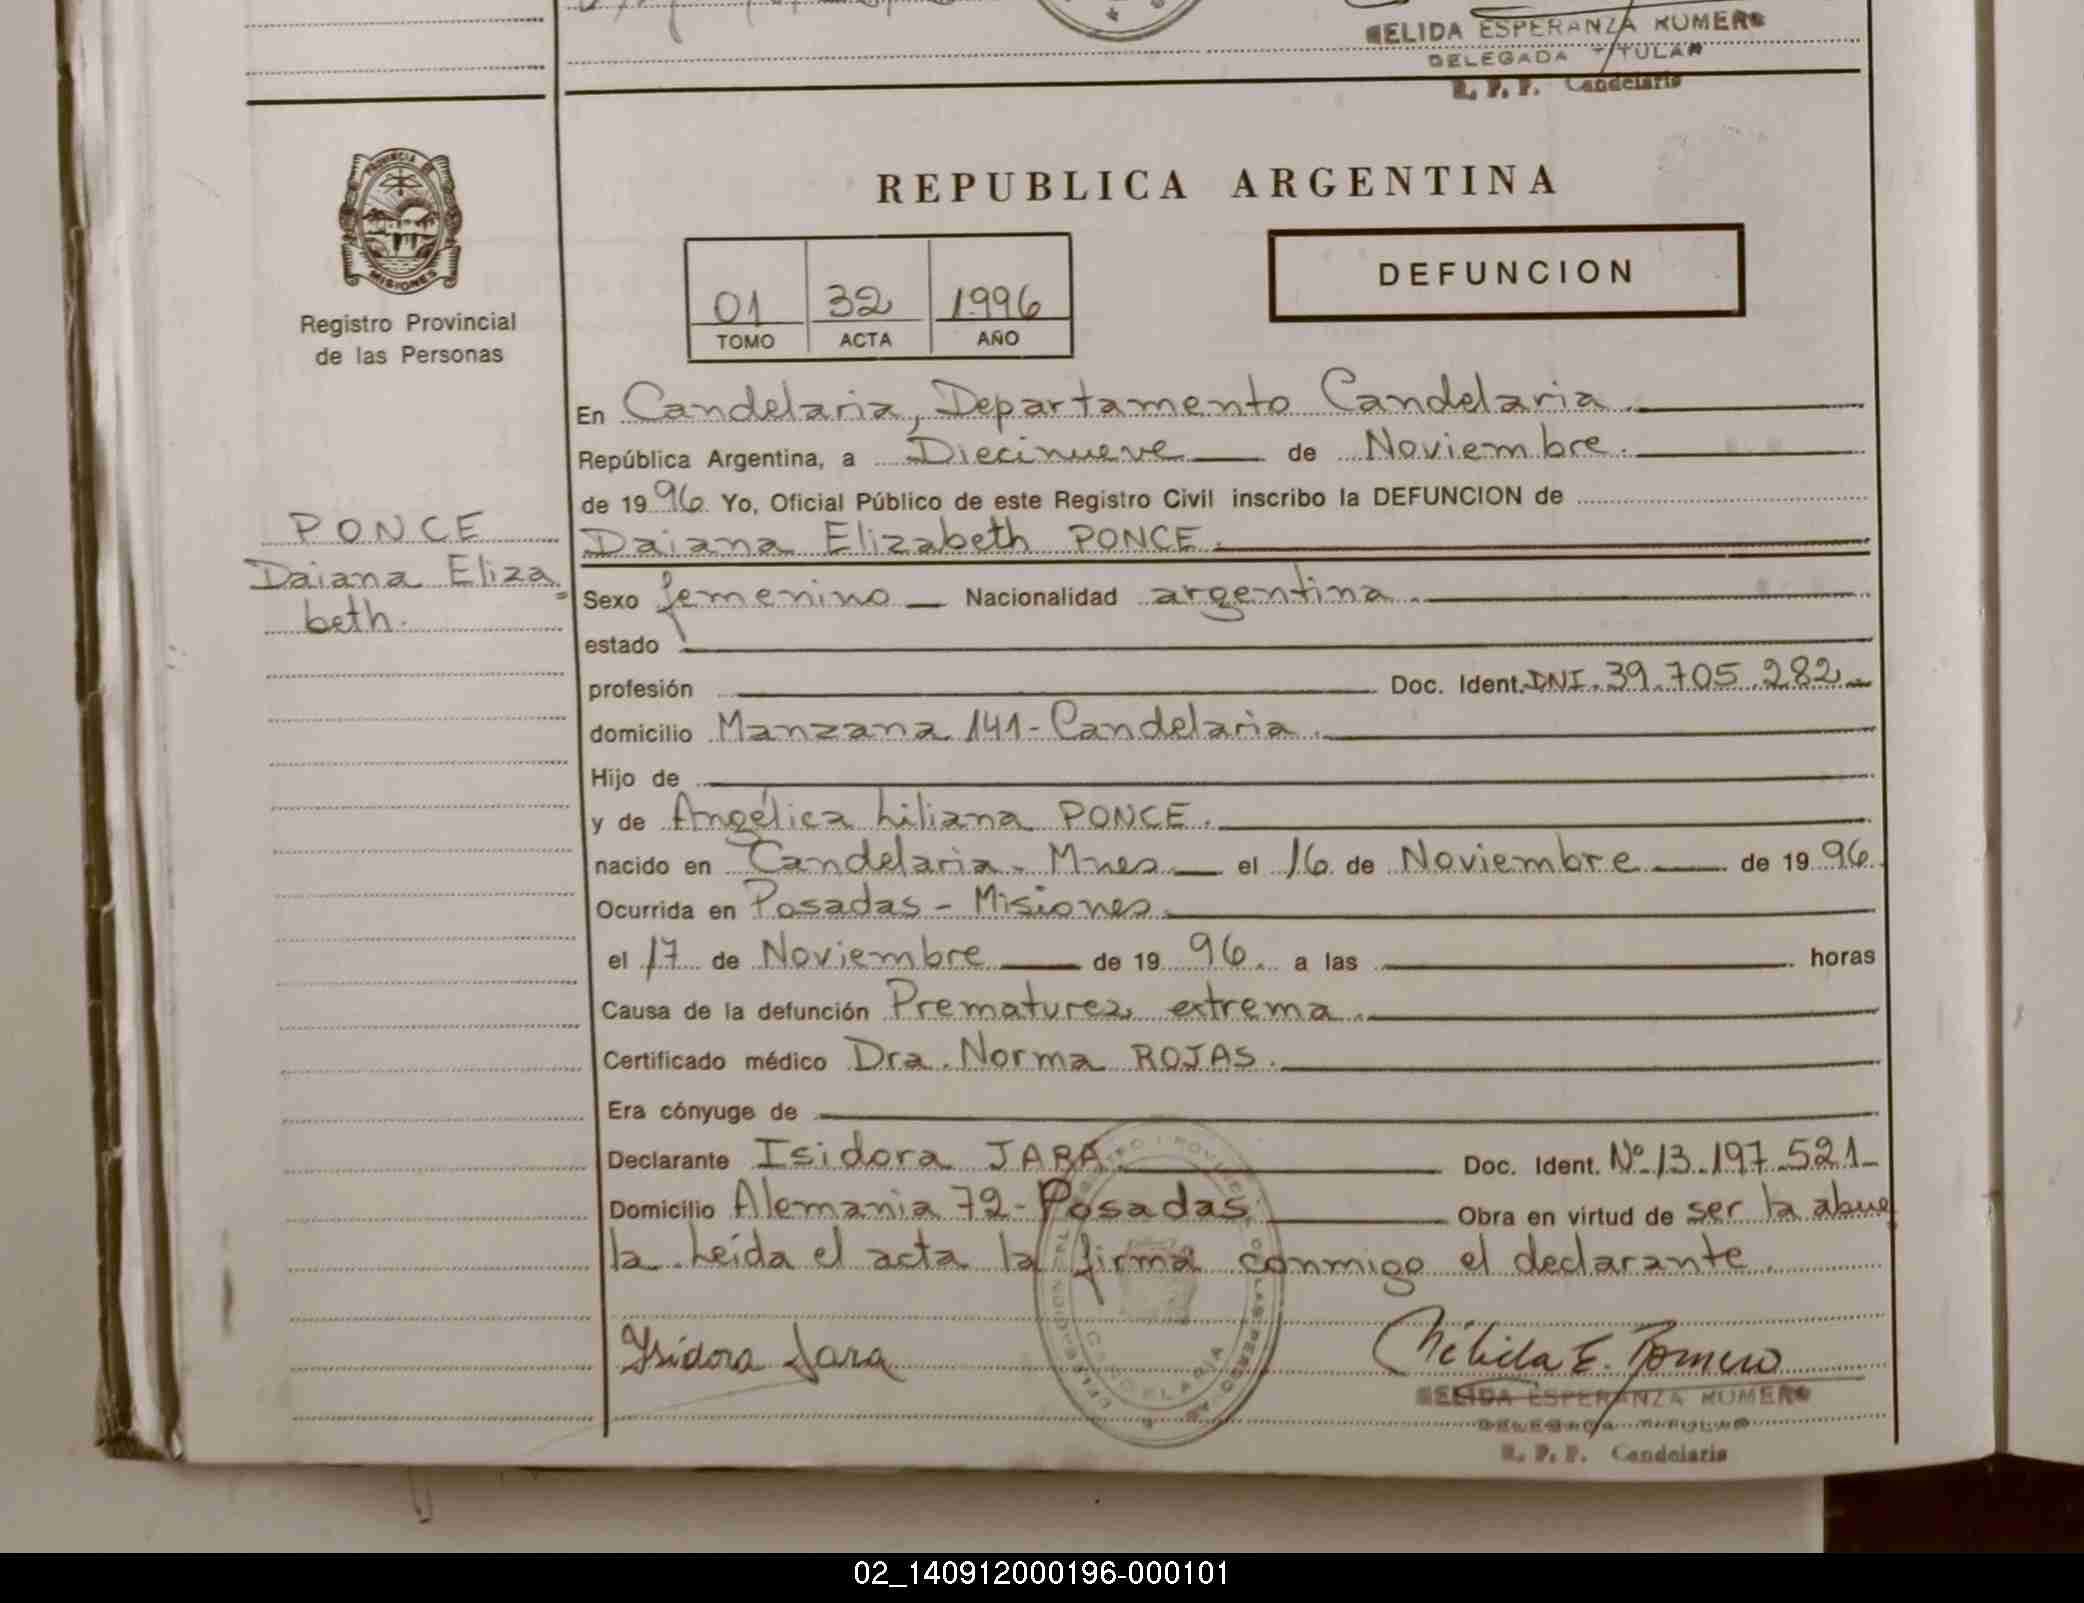 ELIDA ESPERANZA ROMERO
DELEGADA TITULAR
R. P. P. Candelaria
PROVINCIA DE
MISIONES
Registro Provincial
de las Personas
REPUBLICA ARGENTINA
01 32 1996
TOMO ACTA AÑO
DEFUNCION
En Candelaria, Departamento Candelaria
República Argentina, a Diecinueve de Noviembre.
de 1996. Yo, Oficial Público de este Registro Civil inscribo la DEFUNCION de
PONCE
Daiana Eliza
beth.
Daiana Elizabeth PONCE.
Sexo femenino Nacionalidad argentina.
estado
profesión Doc. Ident. DNI. 39.705.282.
domicilio Manzana 141 - Candelaria.
Hijo de
y de Angélica Liliana PONCE.
nacido en Candelaria - Mnes el 16 de Noviembre de 1996.
Ocurrida en Posadas - Misiones.
el 17 de Noviembre de 1996. a las horas
Causa de la defunción Prematurez extrema.
Certificado médico Dra. Norma ROJAS.
Era cónyuge de
Declarante Isidora JARA Doc. Ident. Nº 13.197.521
Domicilio Alemania 72 - Posadas Obra en virtud de ser la abue
la. Leída el acta la firma conmigo el declarante.
Isidora Jara
Nélida E. Romero
ELIDA ESPERANZA ROMERO
DELEGADA TITULAR
R. P. P. Candelaria
02_140912000196-000101